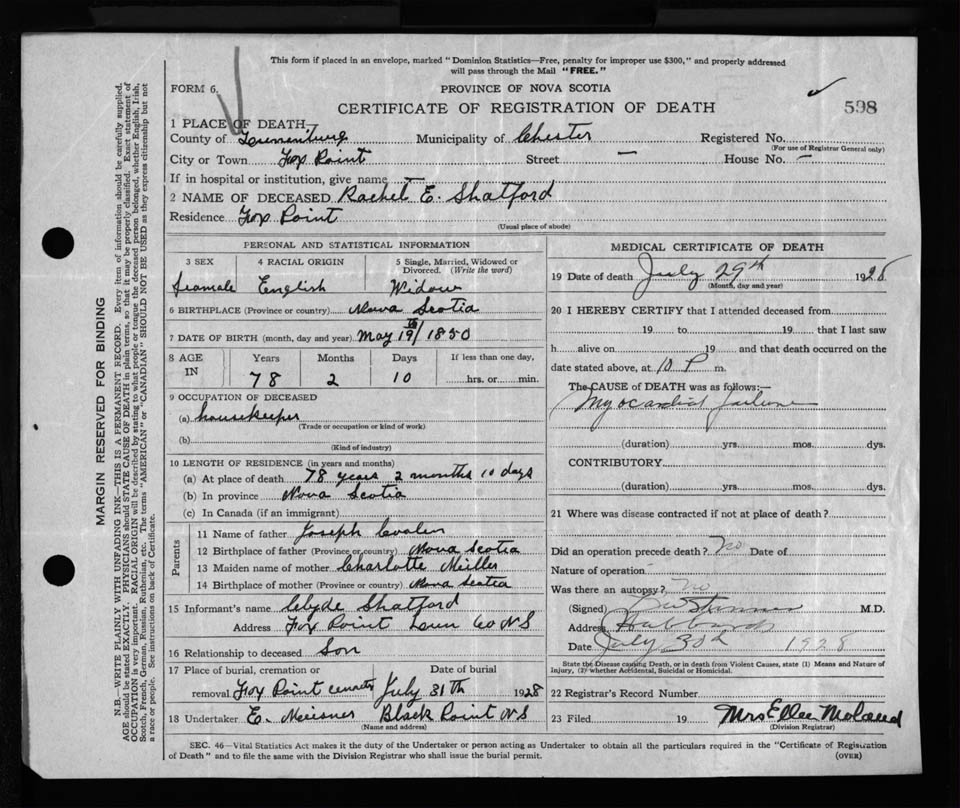 This form if placed in an envelope, marked "Dominion Statistics—Free, penalty for improper use $300," and properly addressed
will pass through the Mail "FREE."
FORM 6.
PROVINCE OF NOVA SCOTIA
CERTIFICATE OF REGISTRATION OF DEATH
598
1 PLACE OF DEATH—
County of Lunenburg Municipality of Chester Registered No.
(For use of Registrar General only)
City or Town Fox Point Street — House No. —
If in hospital or institution, give name —
2 NAME OF DECEASED Rachel E. Shatford
Residence Fox Point
(Usual place of abode)
PERSONAL AND STATISTICAL INFORMATION
3 SEX 4 RACIAL ORIGIN 5 Single, Married, Widowed or
Divorced. (Write the word)
Feamale English Widow
6 BIRTHPLACE (Province or country) Nova Scotia
7 DATE OF BIRTH (month, day and year) May 19th/1850
8 AGE IN Years Months Days If less than one day,
78 2 10 hrs. or min.
9 OCCUPATION OF DECEASED
(a) housekeeper
(Trade or occupation or kind of work)
(b)
(Kind of industry)
10 LENGTH OF RESIDENCE (in years and months)
(a) At place of death 78 years 2 months 10 days
(b) In province Nova Scotia
(c) In Canada (if an immigrant)
Parents
11 Name of father Joseph
12 Birthplace of father (Province or country) Nova Scotia
13 Maiden name of mother Charlotte
14 Birthplace of mother (Province or country) Nova Scotia
15 Informant's name Clyde Shatford
Address Fox Point Lun Co N S
16 Relationship to deceased Son
17 Place of burial, cremation or Date of burial
removal Fox Point July 31th 1928
18 Undertaker E. Meisner Black Point N S
(Name and address)
MEDICAL CERTIFICATE OF DEATH
19 Date of death July 29th 1928
(Month, day and year)
20 I HEREBY CERTIFY that I attended deceased from
19 to 19 that I last saw
h alive on 19 and that death occurred on the
date stated above, at 10 P m.
The CAUSE OF DEATH was as follows:—
Myocardial failure
(duration) yrs. mos. dys.
CONTRIBUTORY
(duration) yrs. mos. dys.
21 Where was disease contracted if not at place of death?
Did an operation precede death? no Date of
Nature of operation
Was there an autopsy? no
(Signed) M.D.
Address Hubbards
Date July 30th 1928
State the Disease causing Death, or in death from Violent Causes, state (1) Means and Nature of
Injury, (2) whether Accidental, Suicidal or Homicidal.
22 Registrar's Record Number
23 Filed 19 Mrs
(Division Registrar)
SEC. 46—Vital Statistics Act makes it the duty of the Undertaker or person acting as Undertaker to obtain all the particulars required in the "Certificate of Registration
of Death" and to file the same with the Division Registrar who shall issue the burial permit. (OVER)
MARGIN RESERVED FOR BINDING
N.B.—WRITE PLAINLY WITH UNFADING INK—THIS IS A PERMANENT RECORD. Every item of information should be carefully supplied.
AGE should be stated EXACTLY. PHYSICIANS should STATE CAUSE OF DEATH in plain terms, so that it may be properly classified. Exact statement of
OCCUPATION is very important. RACIAL ORIGIN will be described by stating to what people or tongue the deceased person belonged, whether English, Irish,
Scotch, French, German, Russian, Ruthenian, etc. The terms "AMERICAN" or "CANADIAN" SHOULD NOT BE USED as they express citizenship but not
a race or people. See instructions on back of Certificate.